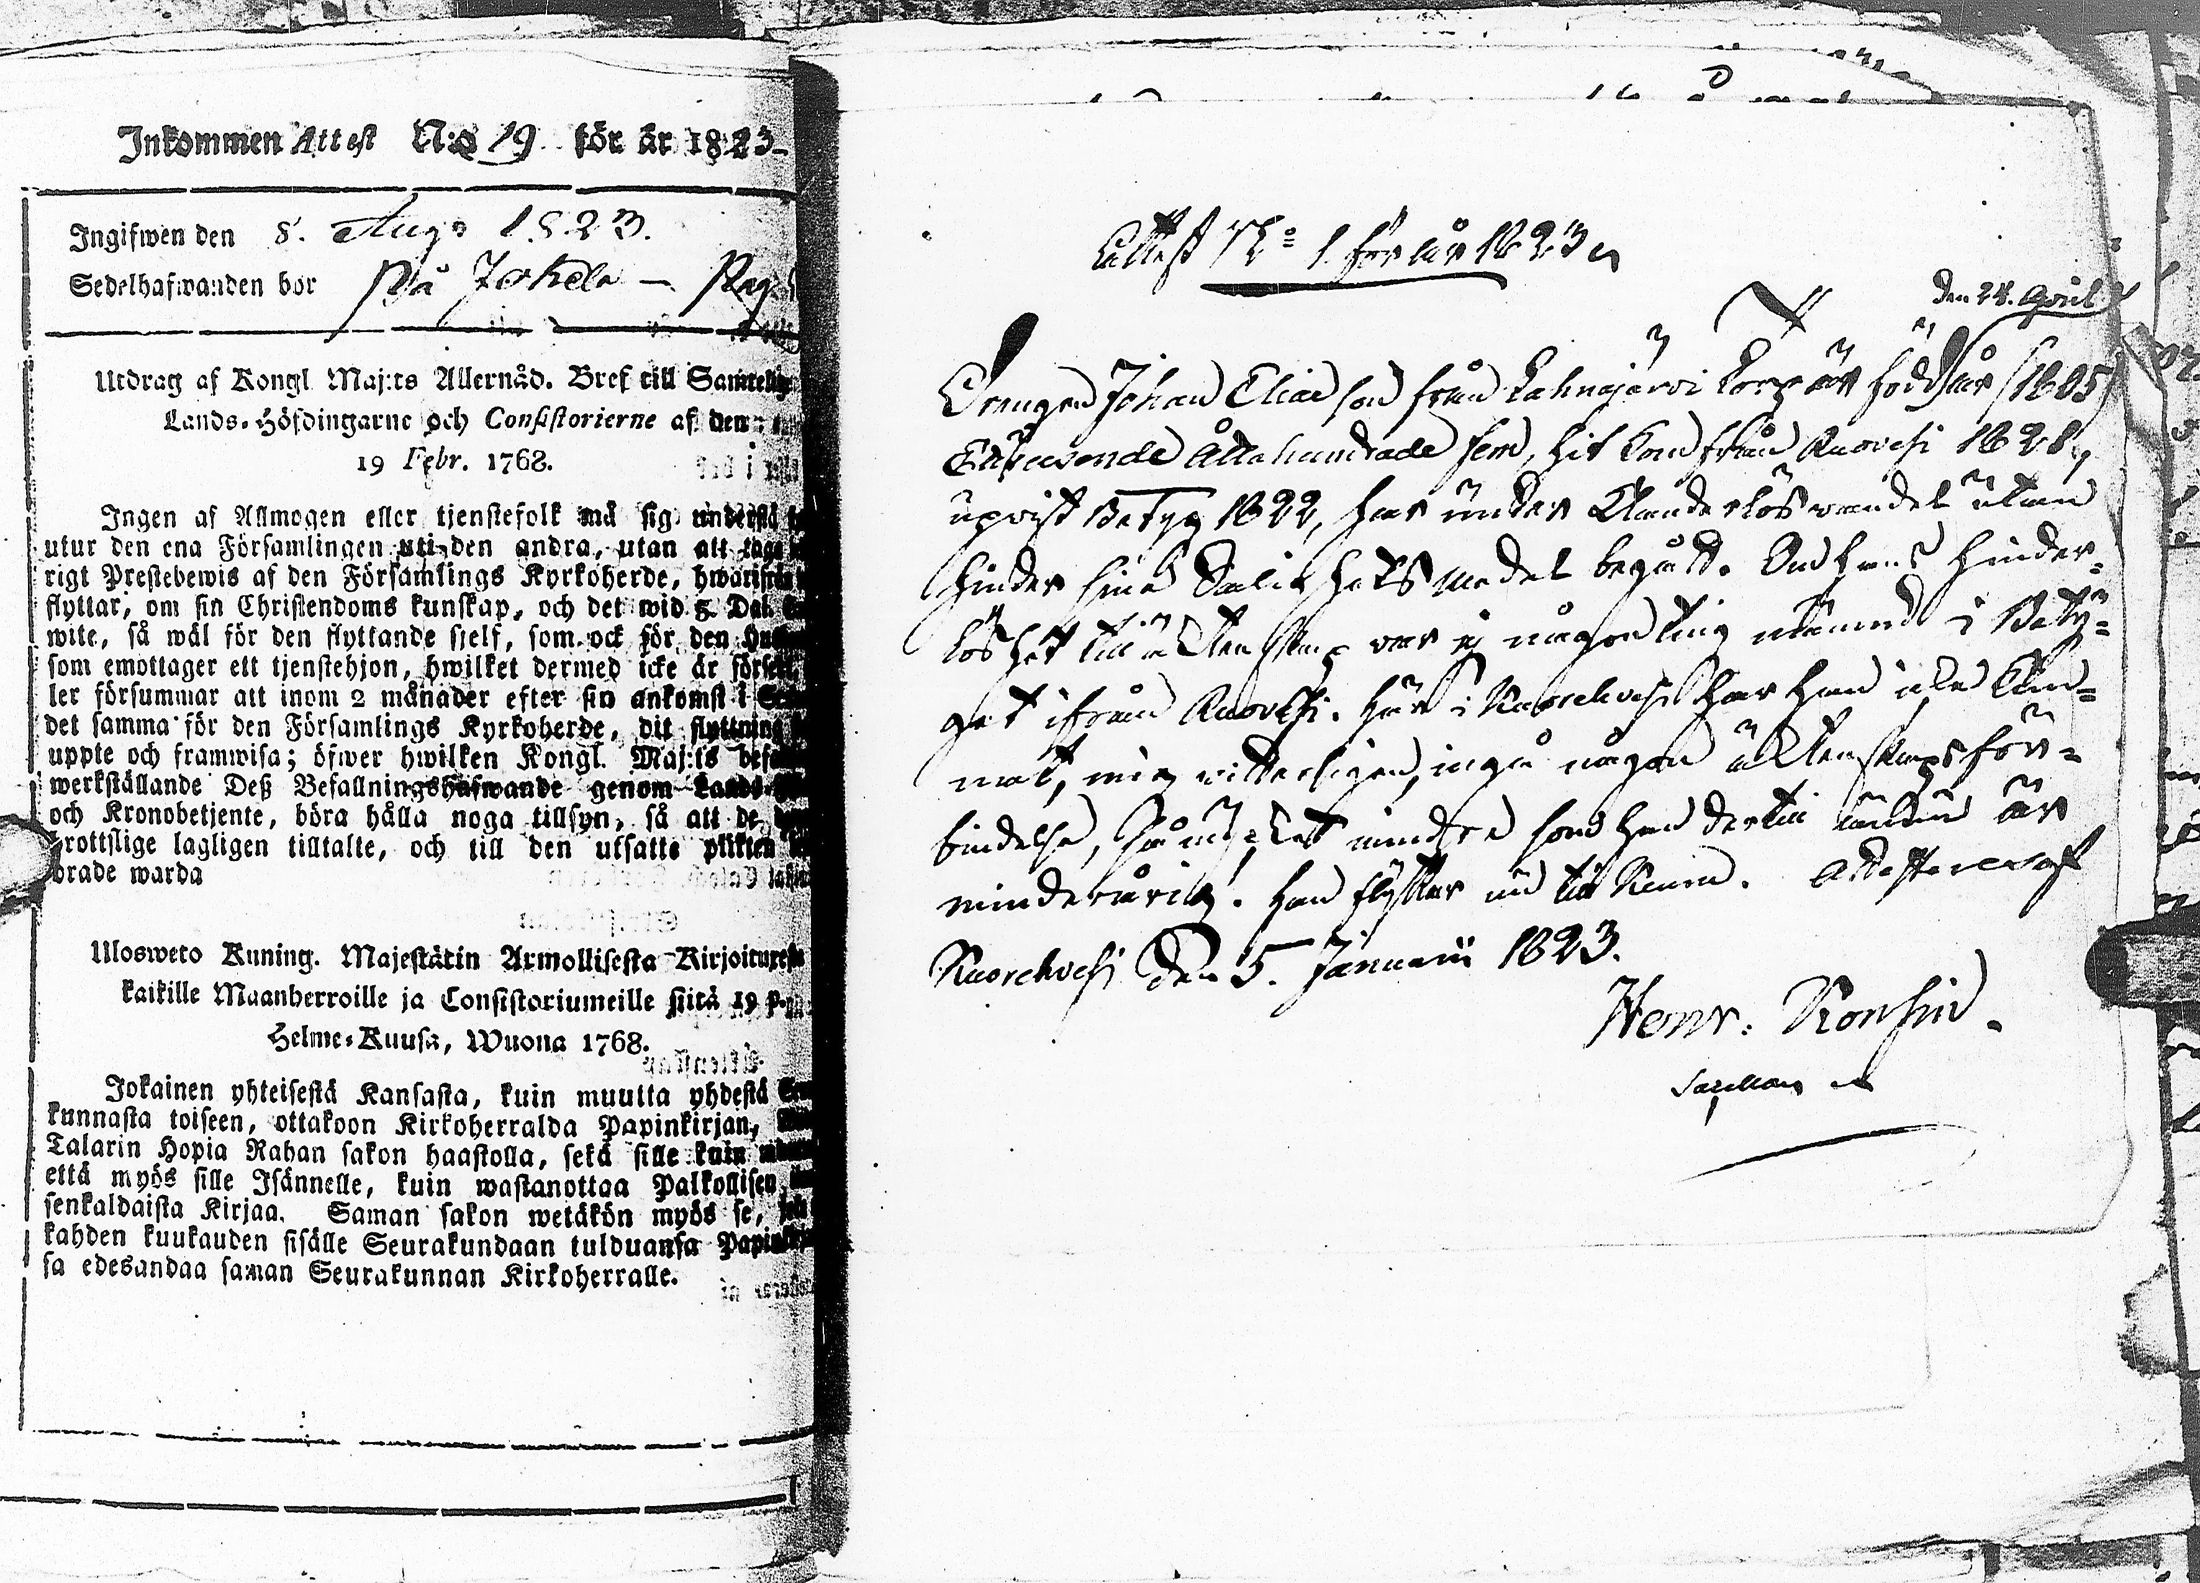 Inkommen Attest N:o 19 för år 1823
Ingifwen den 8. Aug. 1823.
Sedelhafwanden bor på Jokela —
Utdrag af Kongl Maj:ts Allernåd. Bref till Samtelige
Lands-Höfdingarne och Consistorierne af den
19 Febr. 1768.
Ingen af Allmogen eller tjenstefolk må sig understå
utur den ena Församlingen uti den andra, utan att taga
rigt Prestebewis af den Församlings Kyrkoherde, hwarifrån
flyttar, om sin Christendoms kunskap, och det wid 5 Dal.
wite, så wäl för den flyttande sjelf, som ock för den
som emottager ett tjenstehjon, hwilket dermed icke är försedt,
ler försummar att inom 2 månader efter sin ankomst i
det samma för den Församlings Kyrkoherde, dit flyttning
uppte och framwisa; öfwer hwilken Kongl. Maj:ts
werkställande Deß Befallningshafwande genom Lands-
och Kronobetjente, böra hålla noga tillsyn, så att de
brottslige lagligen tilltalte, och till den utsatte plikten
brade warda
Ulosweto Kuning. Majestätin Armollisesta Kirjoituxesta
kaikille Maanherroille ja Consistoriumeille siitä 19 p.
Helme-Kuusa, Wuona 1768.
Jokainen yhteisestä Kansasta, kuin muutta yhdestä
kunnasta toiseen, ottakoon Kirkoherralda Papinkirjan,
Talarin Hopia Rahan sakon haastolla, sekä sille kuin
että myös sille Isännelle, kuin wastanottaa Palkollisen
senkaldaista Kirjaa. Saman sakon wetäkön myös se,
kahden kuukauden sisälle Seurakundaan tulduansa
sa edesandaa saman Seurakunnan Kirkoherralle.
Attest No 1 för år 1823
den 24. April
Drengen Johan Eliasson från Lahnajärvi Torp är född år (1805)
Ettusende Åttahundrade fem, hit kom från Ruovesi 1821,
upvist Betyg 1822, har under Klanderlös vandel utan
hinder sina Salighets medel begått. Om hans hinder-
löshet till äktenskap var ej någonting nämnd i Bety-
get ifrån Ruovesi. Här i Kuorehvesi har han icke
mig vitterligen, ingå någon äktenskapsför-
bindelse, så mycket mindre som han dertill ännu är
minderårig. Han flyttar nu till Keuru. Attesteras af
Kuorehvesi den 5. Januarii 1823.
Henr.
Sacellan